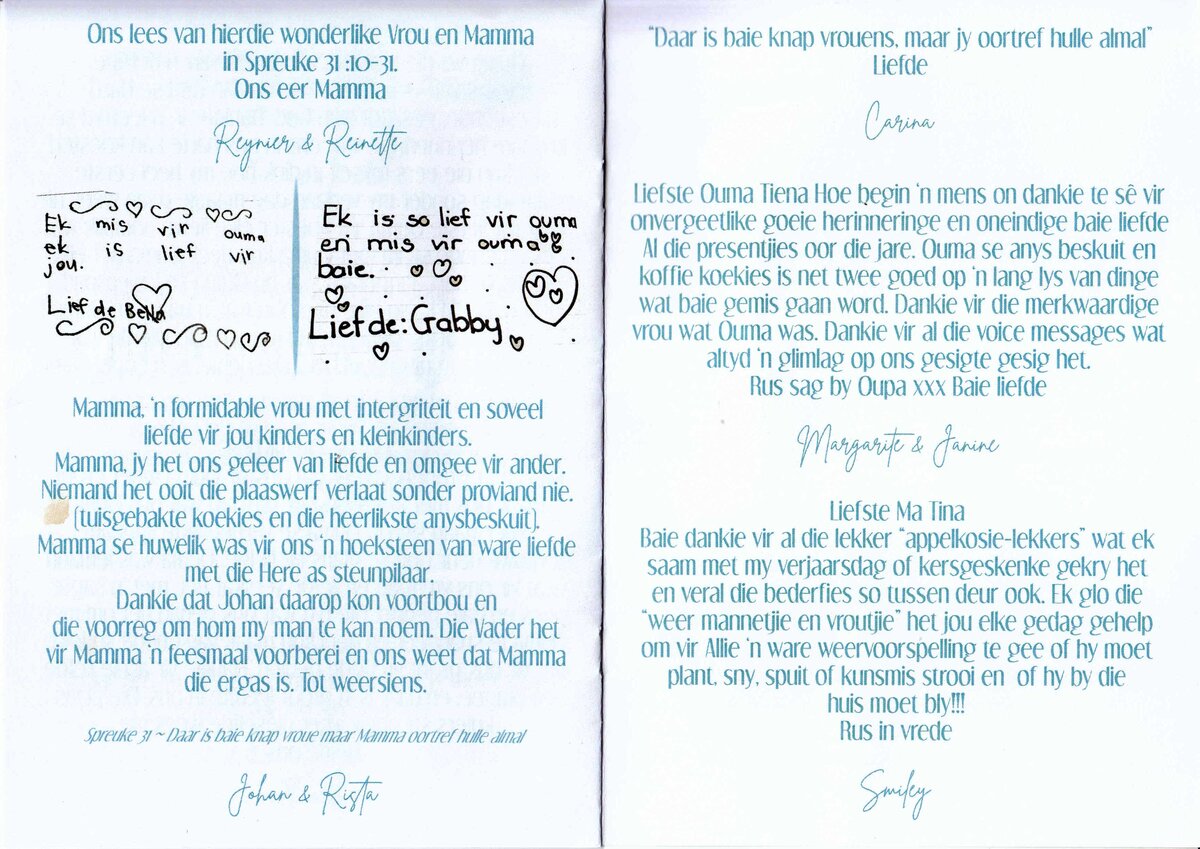 Ons lees van hierdie wonderlike Vrou en Mamma
in Spreuke 31 :10-31.
Ons eer Mamma
Reynier & Reinette
Ek mis vir ouma
ek is lief vir
jou.
Liefde Bella
Ek is so lief vir ouma
en mis vir ouma
baie.
Liefde: Gabby
Mamma, 'n formidable vrou met intergriteit en soveel
liefde vir jou kinders en kleinkinders.
Mamma, jy het ons geleer van liefde en omgee vir ander.
Niemand het ooit die plaaswerf verlaat sonder proviand nie.
(tuisgebakte koekies en die heerlikste anysbeskuit).
Mamma se huwelik was vir ons 'n hoeksteen van ware liefde
met die Here as steunpilaar.
Dankie dat Johan daarop kon voortbou en
die voorreg om hom my man te kan noem. Die Vader het
vir Mamma 'n feesmaal voorberei en ons weet dat Mamma
die ergas is. Tot weersiens.
Spreuke 31 ~ Daar is baie knap vroue maar Mamma oortref hulle almal
Johan & Rista
"Daar is baie knap vrouens, maar jy oortref hulle almal"
Liefde
Carina
Liefste Ouma Tiena Hoe begin 'n mens on dankie te sê vir
onvergeetlike goeie herinneringe en oneindige baie liefde
Al die presentjies oor die jare. Ouma se anys beskuit en
koffie koekies is net twee goed op 'n lang lys van dinge
wat baie gemis gaan word. Dankie vir die merkwaardige
vrou wat Ouma was. Dankie vir al die voice messages wat
altyd 'n glimlag op ons gesigte gesig het.
Rus sag by Oupa xxx Baie liefde
Margarite & Janine
Liefste Ma Tina
Baie dankie vir al die lekker "appelkosie-lekkers" wat ek
saam met my verjaarsdag of kersgeskenke gekry het
en veral die bederfies so tussen deur ook. Ek glo die
"weer mannetjie en vroutjie" het jou elke gedag gehelp
om vir Allie 'n ware weervoorspelling te gee of hy moet
plant, sny, spuit of kunsmis strooi en of hy by die
huis moet bly!!!
Rus in vrede
Smiley